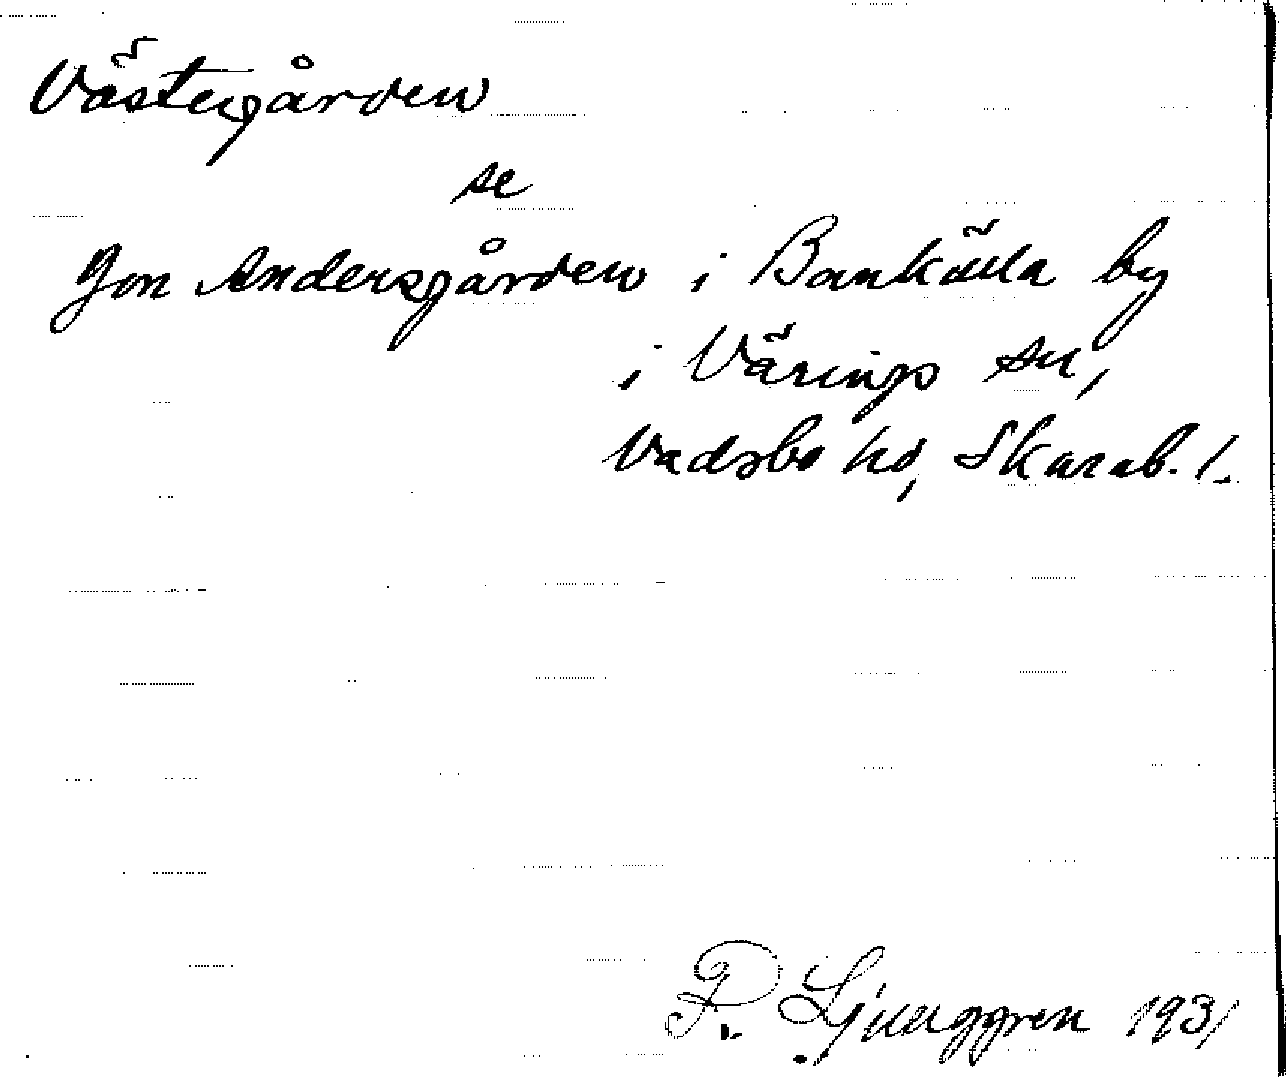 Västergården
se
Jon Andersgården i Bankälla by
i Värings sn,
Vadsbo hd, Skarab. l.
P. Ljunggren 1931